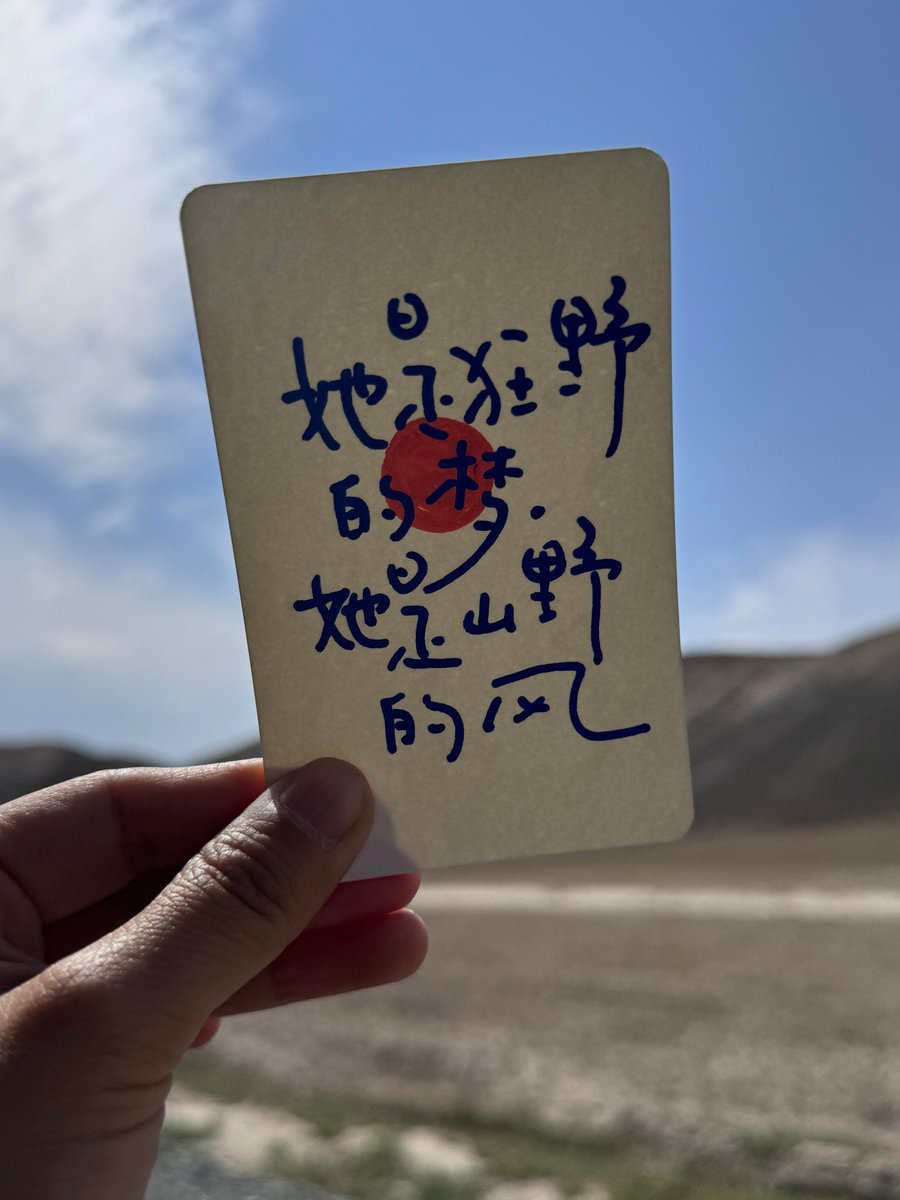 她是狂野
的梦.
她是山野
的风